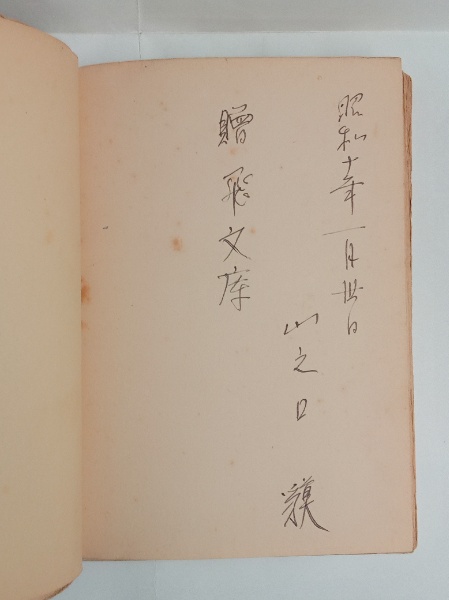 昭和十年一月丗日
山之口 貘
贈 飛文庫